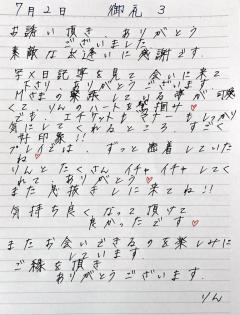 7月2日 御礼 3
お誘い頂き、ありがとう
ございました
素敵な出逢いに感謝です。
写メ日記等を見て会いに来て
下さり ありがとうございます
Mさまの 優しくて
くて、りんのハートを鷲掴み♡
でも、エチケットも マナーもしっかり
気にしてくれるところ、すごく
好印象!!
プレイでは、ずっと密着していた
ね♡
りんとたくさん イチャイチャしてく
れて、ありがとう♡
また息抜きしに来てね!!
気持ち良くなって頂けて
良かったです♡
またお会いできるのを楽しみに
しています。
ご縁を頂き
ありがとうございます。
りん